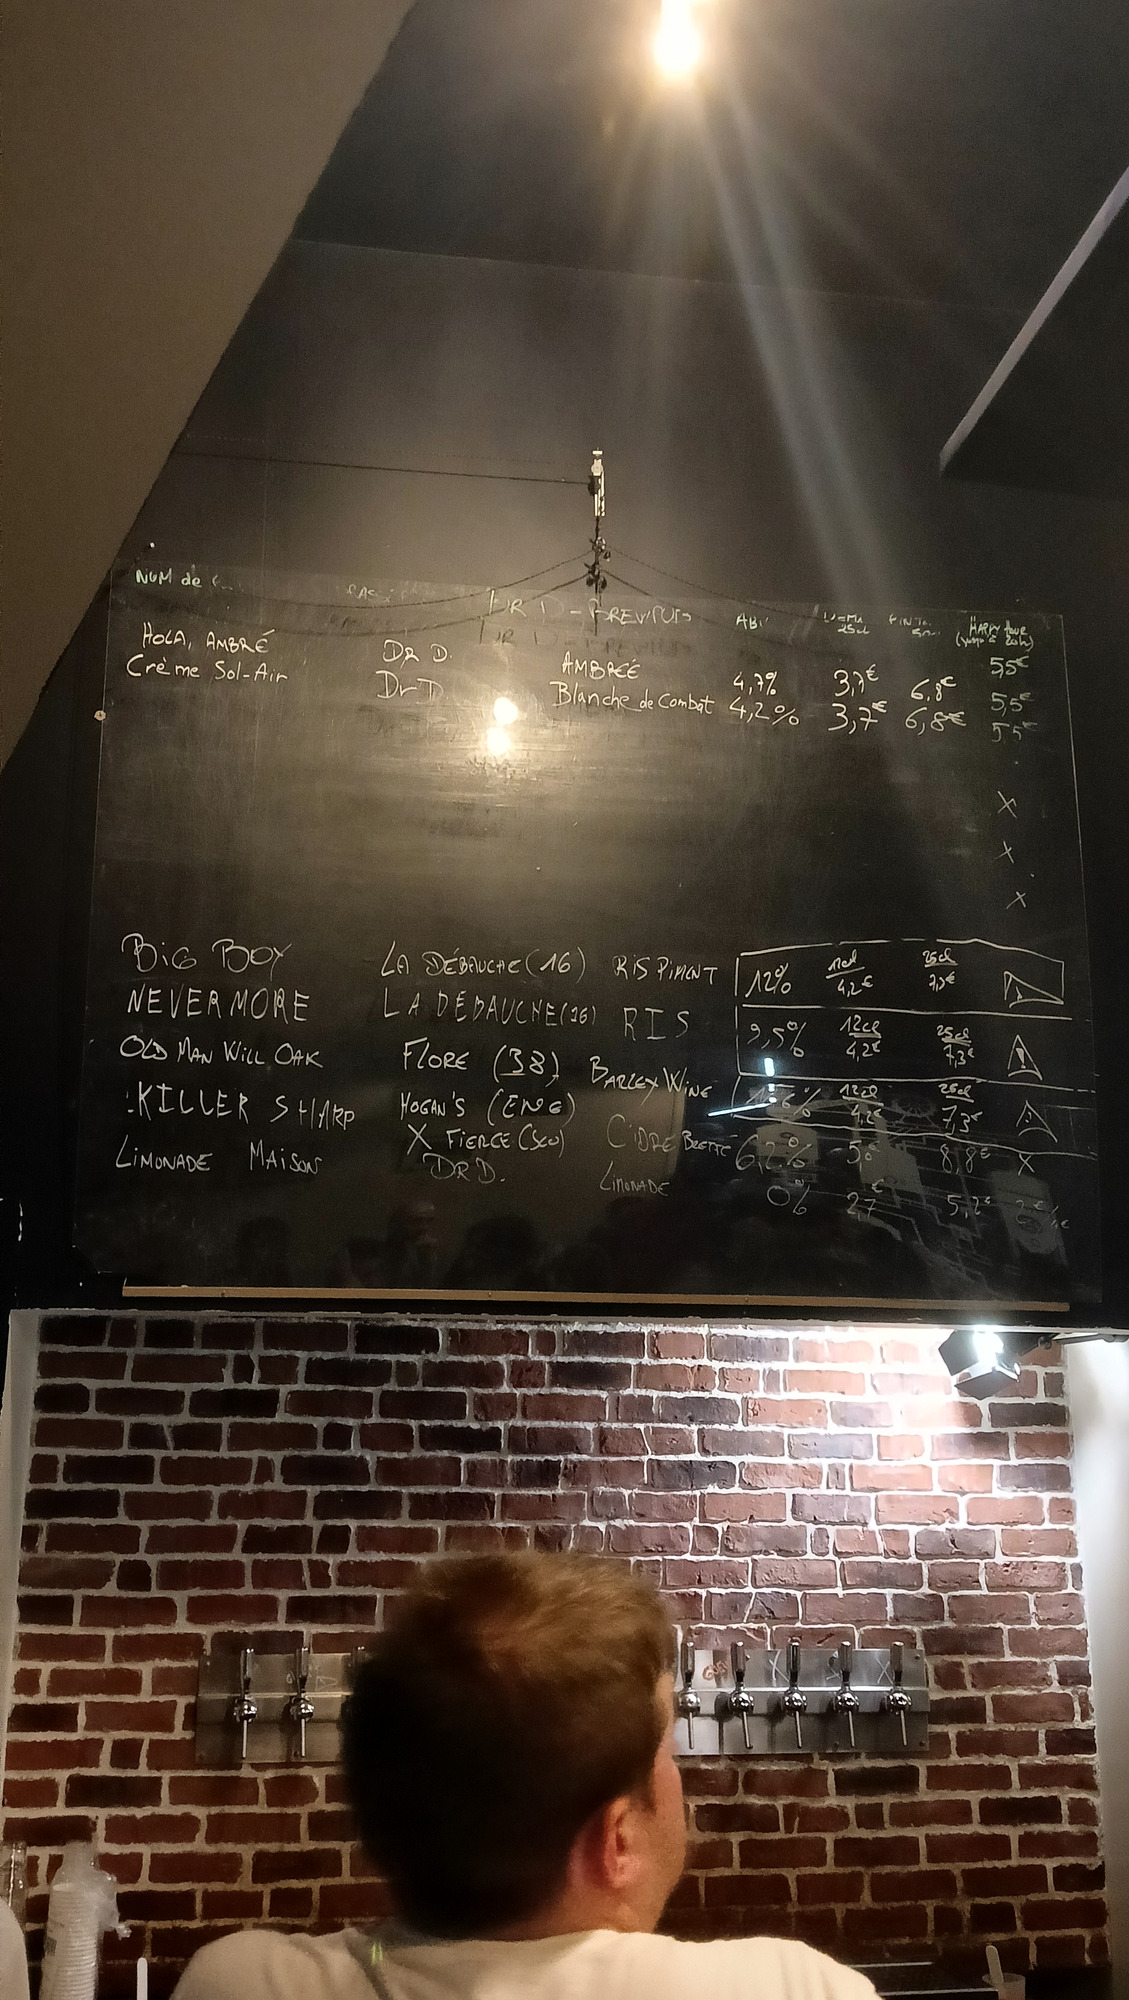 NOM de
DR D-BREWPUB
HAPPY HOUR
25cl
HOLA, AMBRÉ DR D. AMBRÉE 4,7% 3,7€ 6,8€ 5,5€
Crème Sol-Air Dr D. Blanche de Combat 4,2% 3,7€ 6,8€ 5,5€
5,5€
X
X
X
BIG BOY LA DÉBAUCHE (16) RIS PIMENT 12% 12cl 4,2€ 25cl 7,3€
NEVERMORE LA DÉBAUCHE (16) RIS 9,5% 12cl 4,2€ 25cl 7,3€ !
OLD MAN WILL OAK FLORE (38) BARLEY WINE 12cl 4,2€ 25cl 7,3€
KILLER SHARP HOGAN'S (ENG) X FIERCE (SCO) CIDRE BRETTÉ 6,2% 5€ 8,8€ X
LIMONADE MAISON DR D. LIMONADE 0% 2,7€ 5,2€